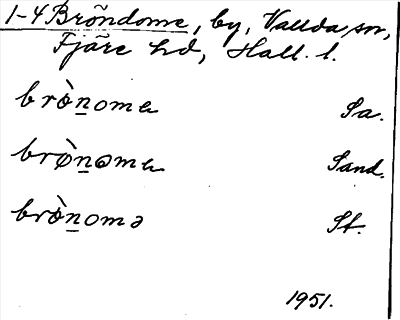 1-4 Brõndome, by, Vallda sn,
Fjäre hd, Hall. l.
brònome Sa.
brø̀nome Sand.
brònomə St.
1951.